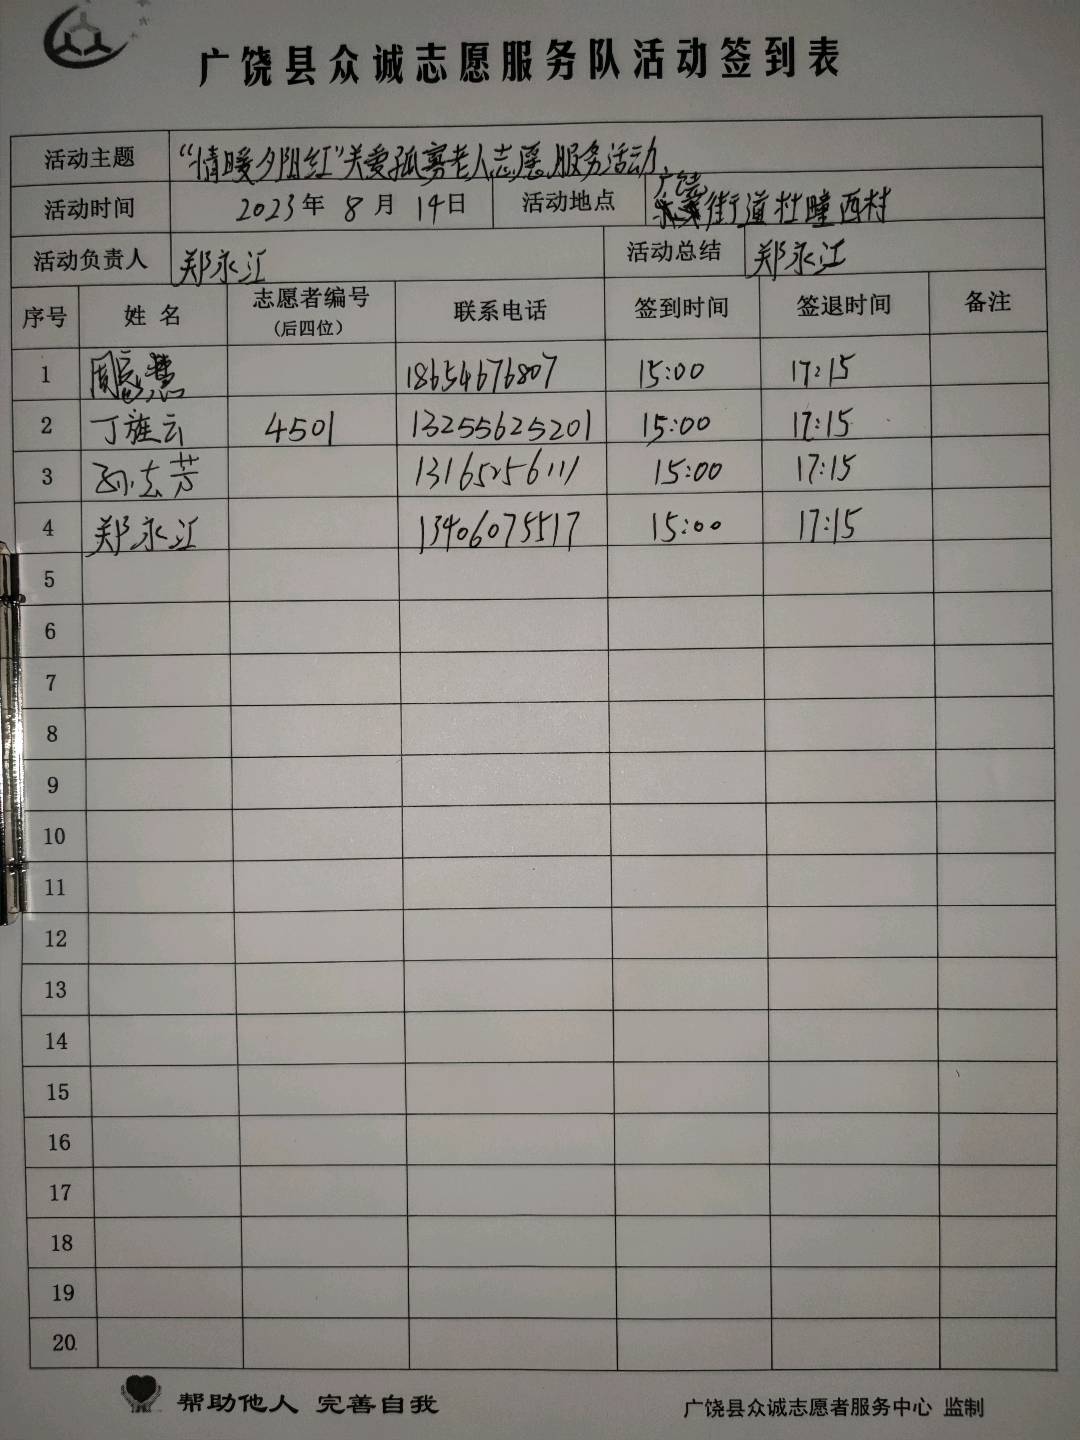 广饶县众诚志愿服务队活动签到表
活动主题 “情暖夕阳红”关爱孤寡老人志愿服务活动
活动时间 2023年 8月 14日 活动地点 广饶街道杜疃西村
活动负责人 郑永江 活动总结 郑永江
序号 姓 名 志愿者编号 (后四位) 联系电话 签到时间 签退时间 备注
1 周 慧 18654676807 15:00 17:15
2 丁 云 4501 13255625201 15:00 17:15
3 孙志芳 13165256111 15:00 17:15
4 郑永江 13406075517 15:00 17:15
5
6
7
8
9
10
11
12
13
14
15
16
17
18
19
20
帮助他人 完善自我
广饶县众诚志愿者服务中心 监制